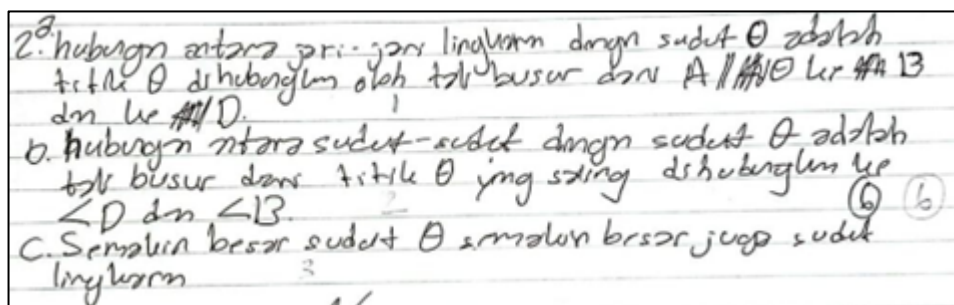 2.a. hubungn antara jari-jari lingkarn dngn sudut θ adalah
titik θ dihubungkn oleh tali busur dari A θ ke B
dn ke D.
1
b. hubungn antara sudut-sudut dngn sudut θ adalah
tali busur dari titik θ yng saling dihubungkn ke
<D dn <B.
2
6 6
C. Semakin besar sudut θ semakin besar juga sudut
lingkarn
3